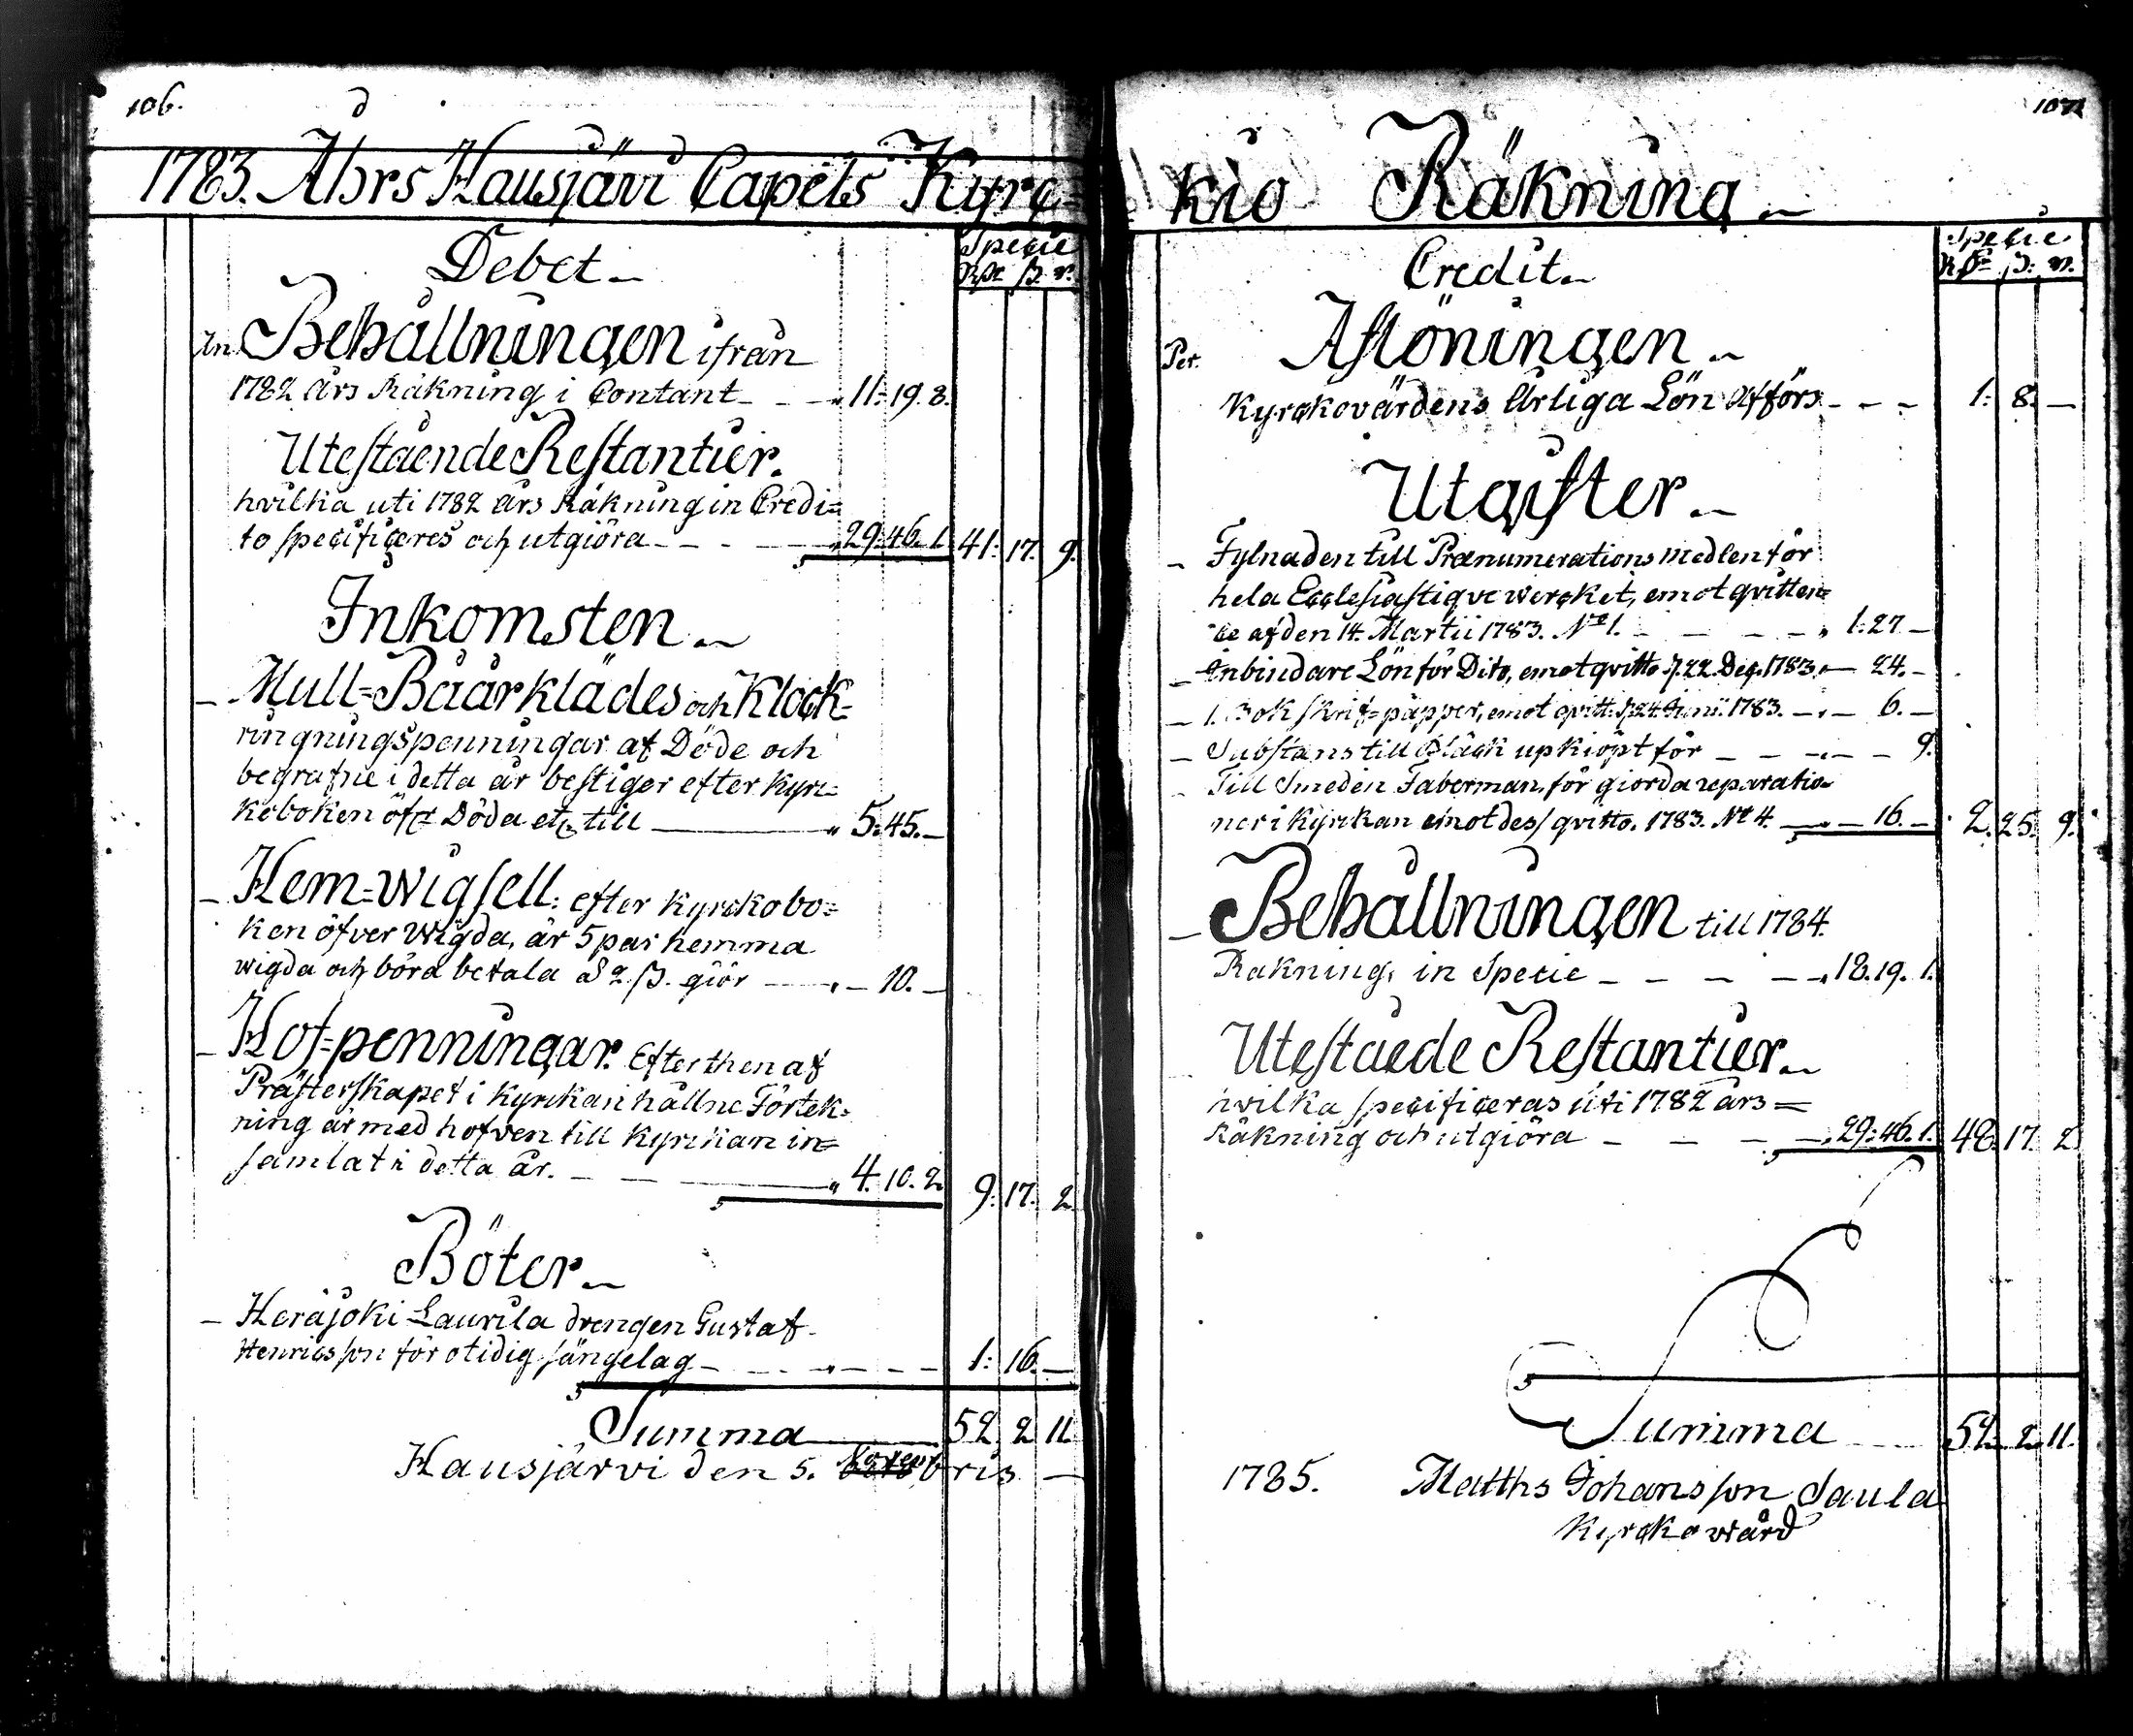 106.
1783. Åhrs Hausjävi Capels Kyrc=
Debet
Specie
Rdr ß. r.
An Behållningen ifrån
1782 Års Räkning i Contant - - - „ 11: 19. 8.
Utestående Restantier.
hvilka uti 1782 Års Räkning in Credi=
to specificeres och utgiöra - - - „ 29: 46. 1. 41: 17. 9.
Inkomsten
- Mull=Båårklädes och Klock=
ringningspenningar af Döde och
begrafne i detta år bestiger efter Kyrc=
koboken öfr Döda etc till „ 5: 45. -
- Hem=wigsell: efter Kyrckobo=
ken öfver Wigda, är 5 par hemma
wigda och böra betala a 2 ß. giör „ - 10. -
- Hof=penningar. Efter then af
Prästerskapet i Kyrckan hållne Förtek=
ning är med hofven till Kyrckan in=
samlat i detta år. - - „ 4. 10. 2. 9: 17. 2.
Böter
- Herajoki Laurila drengen Gustaf
Henricsson för otidig sängelag - - - „ - - - 1: 16. -
Summa 52. 2. 11.
Hausjärvi den 5. Novembris -
107.
kio Räkning
Credit
Specie
Rdr ß: r.
Per. Aflöningen
Kyrckovärdens Årliga Lön afförs - - - 1: 8. -
Utgifter
- Fylnaden till Prænumerations medlen för
hela Ecclesiastiqve wercket, emot qvitten=
ce af den 14. Martii 1783. No 1. - - - - „ 1: 27 -
- Inbindare Lön för Dito, emot qvitto d. 22. Dec. 1783. „ - 24. -
- 1. Bok skrif=papper, emot qvitt: d. 24. Junii. 1783. - „ - 6. -
- Substans till Bläck upkiöpt för - - - „ - - 9.
- Till Smeden Faberman, för giorda reparatio=
ner i Kyrckan emot dess qvitto. 1783. No 4. „ - 16. - 2. 25. 9.
- Behållningen till 1784.
Räkning, in Specie - - - - „ 18. 19. 1.
Utestaede Restantier
hvilka specificeras uti 1782 års=
Räkning och utgiöra - - - „ 29: 46. 1. 48. 17. 2.
Summa 52. 2. 11.
1785. Matths Johansson Saula
Kyrckowärd